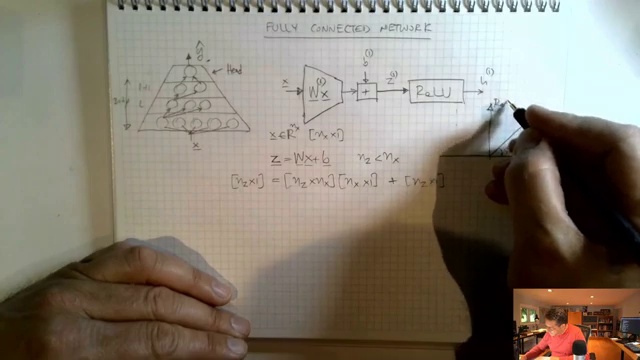 FULLY CONNECTED NETWORK
ŷ
Head
L+1
L
x
x W^(1) x + b^(1) z^(1) ReLU h^(1)
x ∈ R^nx [nx×1]
z = Wx + b nz < nx
[nz×1] = [nz×nx] [nx×1] + [nz×1]